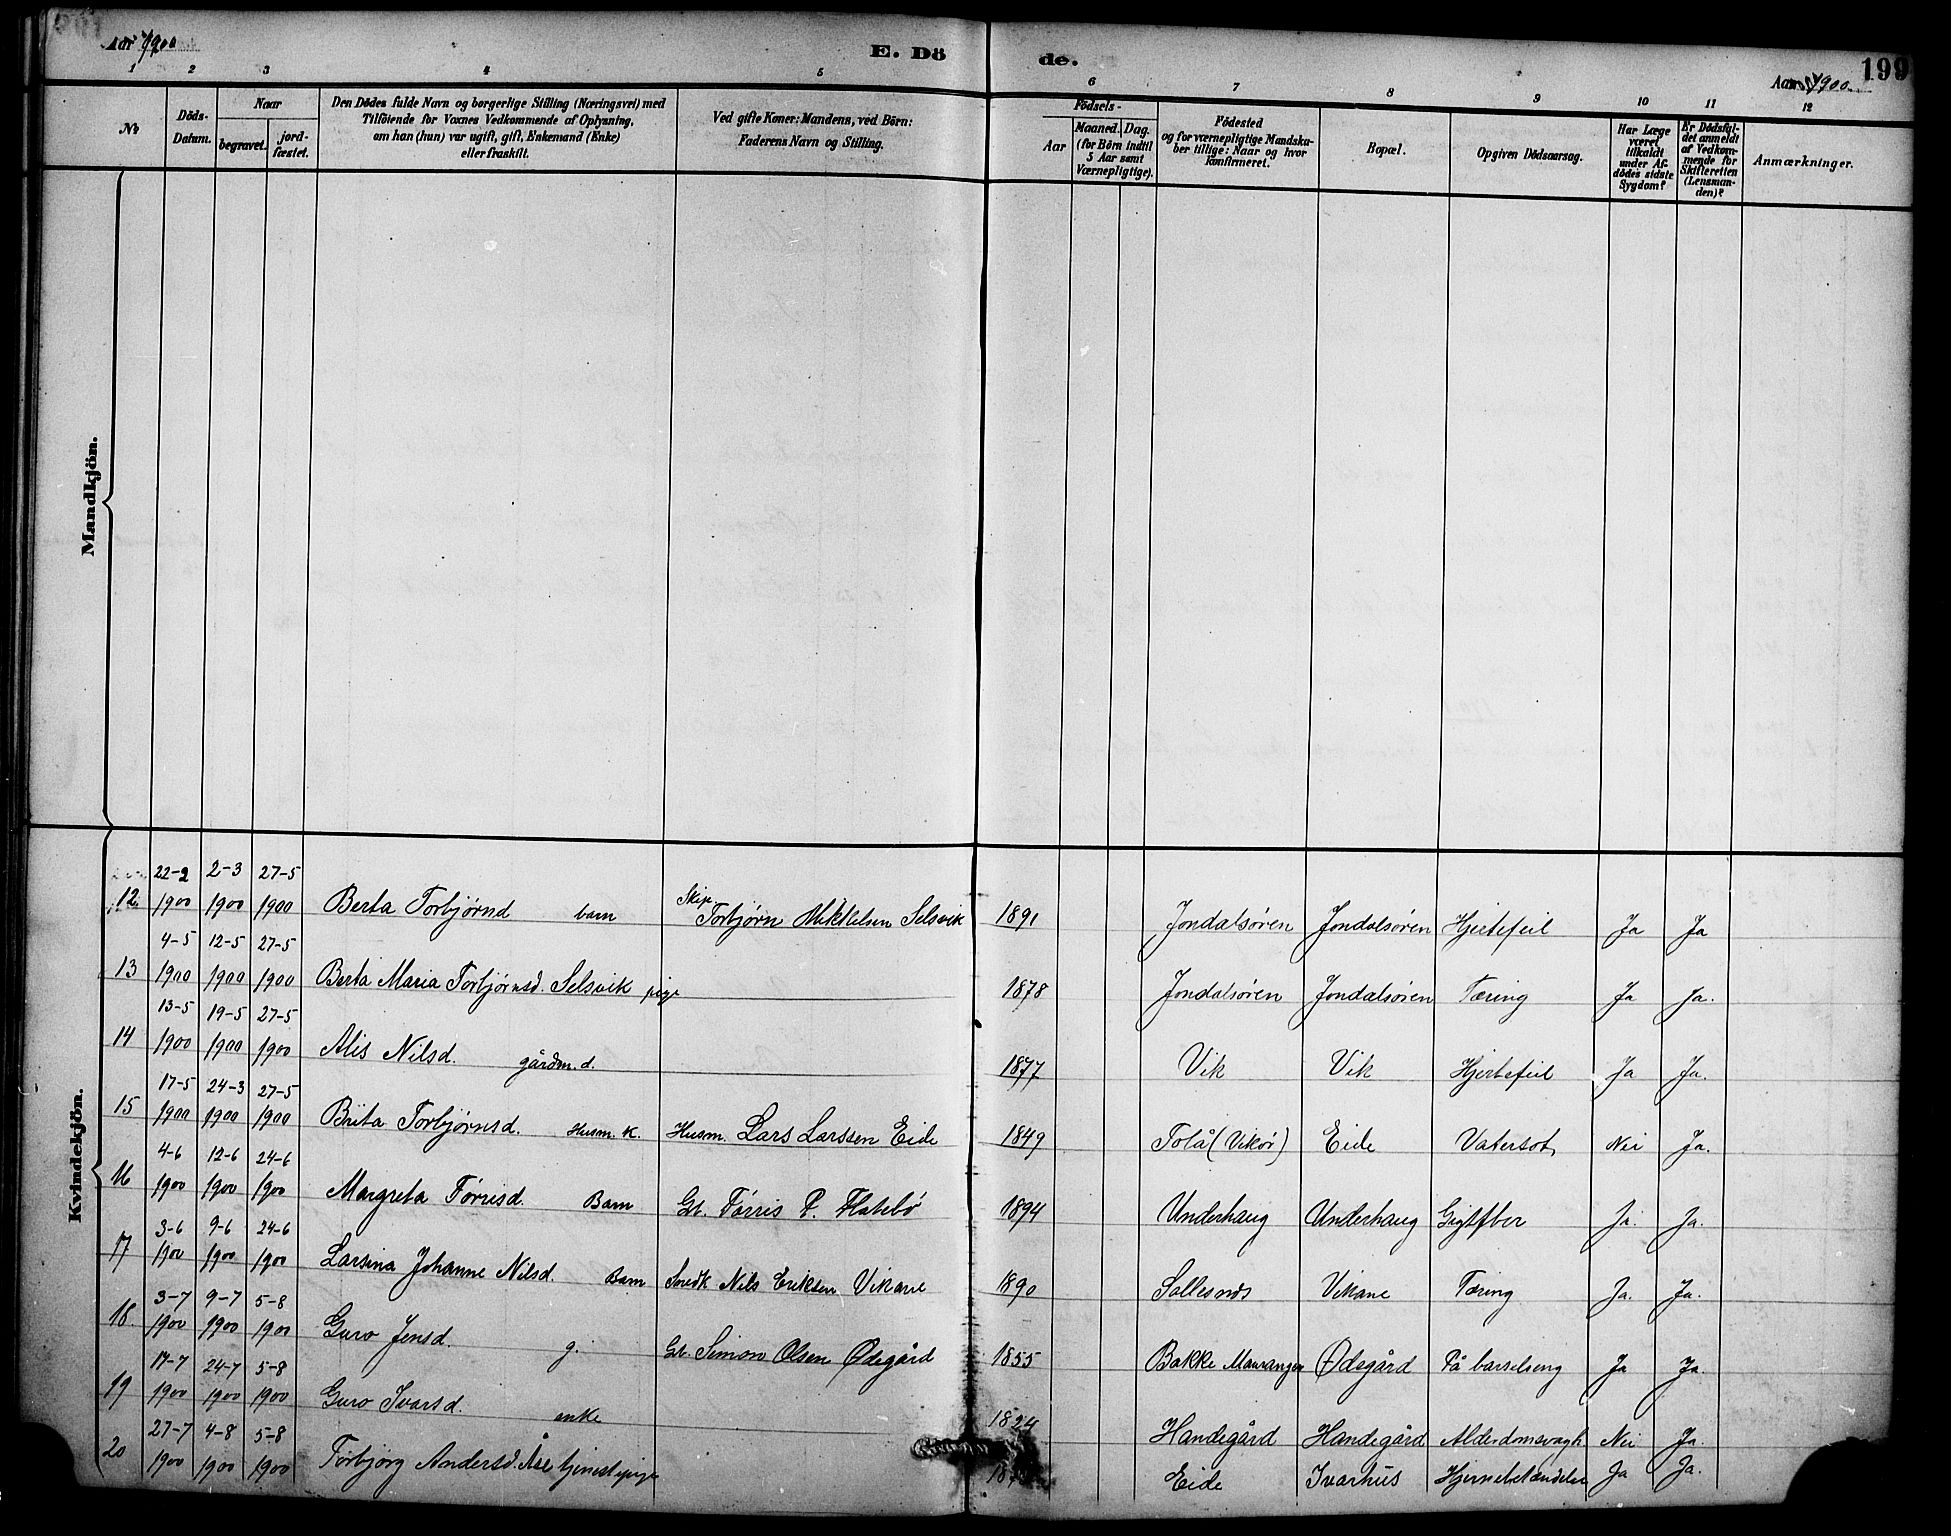 Aar 1900
E. Dö
de.
Aar 1900.
199
1 2 3 4 5 6 7 8 9 10 11 12
No
Döds-Datum.
Naar
begravet.
jord-fæstet.
Den Dödes fulde Navn og borgerlige Stilling (Næringsvei) med
Tilföiende for Voxnes Vedkommende af Oplysning,
om han (hun) var ugift, gift, Enkemand (Enke)
eller fraskilt.
Ved gifte Koner: Mandens, ved Börn:
Faderens Navn og Stilling.
Födsels-
Aar
Maaned. Dag.
(for Börn indtil
5 Aar samt
Værnepligtige).
Födested
og for værnepligtige Mandska-
ber tillige: Naar og hvor
konfirmeret.
Bopæl.
Opgiven Dödsaarsag.
Har Læge
været
tilkaldt
under Af-
dödes sidste
Sygdom?
Er Dödsfal-
det anmeldt
af Vedkom-
mende for
Skifteretten
(Lensman-
den)?
Anmærkninger.
Mandkjön.
Kvindekjön.
22-2 2-3 27-5
12 1900 1900 1900 Berta Torbjørnd barn Skip. Torbjørn Mikkelsen Selsvik 1891 Jondalsøren Jondalsøren Hjertefeil Ja Ja
4-5 12-5 27-5
13 1900 1900 1900 Berta Maria Torbjørnsd. Selsvik pige 1878 Jondalsøren Jondalsøren Tæring Ja Ja.
13-5 19-5 27-5
14 1900 1900 1900 Alis Nilsd. gårdm.d. 1877 Vik Vik Hjertefeil Ja Ja.
17-5 24-3 27-5
15 1900 1900 1900 Brita Torbjørnsd. Husm. K. Husm. Lars Larssen Eide 1849 Tolå (Vikør) Eide Vatersot Nei Ja.
4-6 12-6 24-6
16 1900 1900 1900 Margreta Tørrisd. Barn Gt. Tørris P. Flatebø 1894 Underhaug Underhaug Gigtfber Ja. Ja.
3-6 9-6 24-6
17 1900 1900 1900 Larsina Johanne Nilsd. Barn Snedk Nils Eriksen Vikane 1890 Sollesnes Vikane Tæring Ja. Ja.
3-7 9-7 5-8
18. 1900 1900 1900 Guro Jensd. g. Gt. Simon Olsen Ødegård 1855 Bakke Mauranger Ødegård På barselseng Ja Ja.
17-7 24-7 5-8
19 1900 1900 1900 Guro Ivarsd. enke 1824 Handegård Handegård Alderdomsvagh Nei Ja.
27-7 4-8 5-8
20 1900 1900 1900 Torbjørg Andersd. Åse tjenestepige Eide Ivarhus Hjernebetændelse Ja Ja.